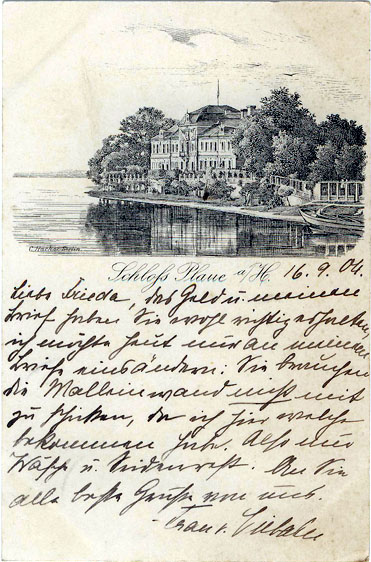 C. Hacker Berlin
Schloss Plaue a/H. 16. 9. 04.
Liebe Frieda, das Geld u. meinen
Brief haben Sie wohl richtig erhalten,
ich möchte heut nur an meinem
Briefe eins ändern: Sie brauchen
die Malleinwand nicht mit
zu schicken, da ich hier welche
bekommen habe. Also nur
Wäsche u. Seidenrest. An Sie
alle beste Grüße von uns.
Frau v.